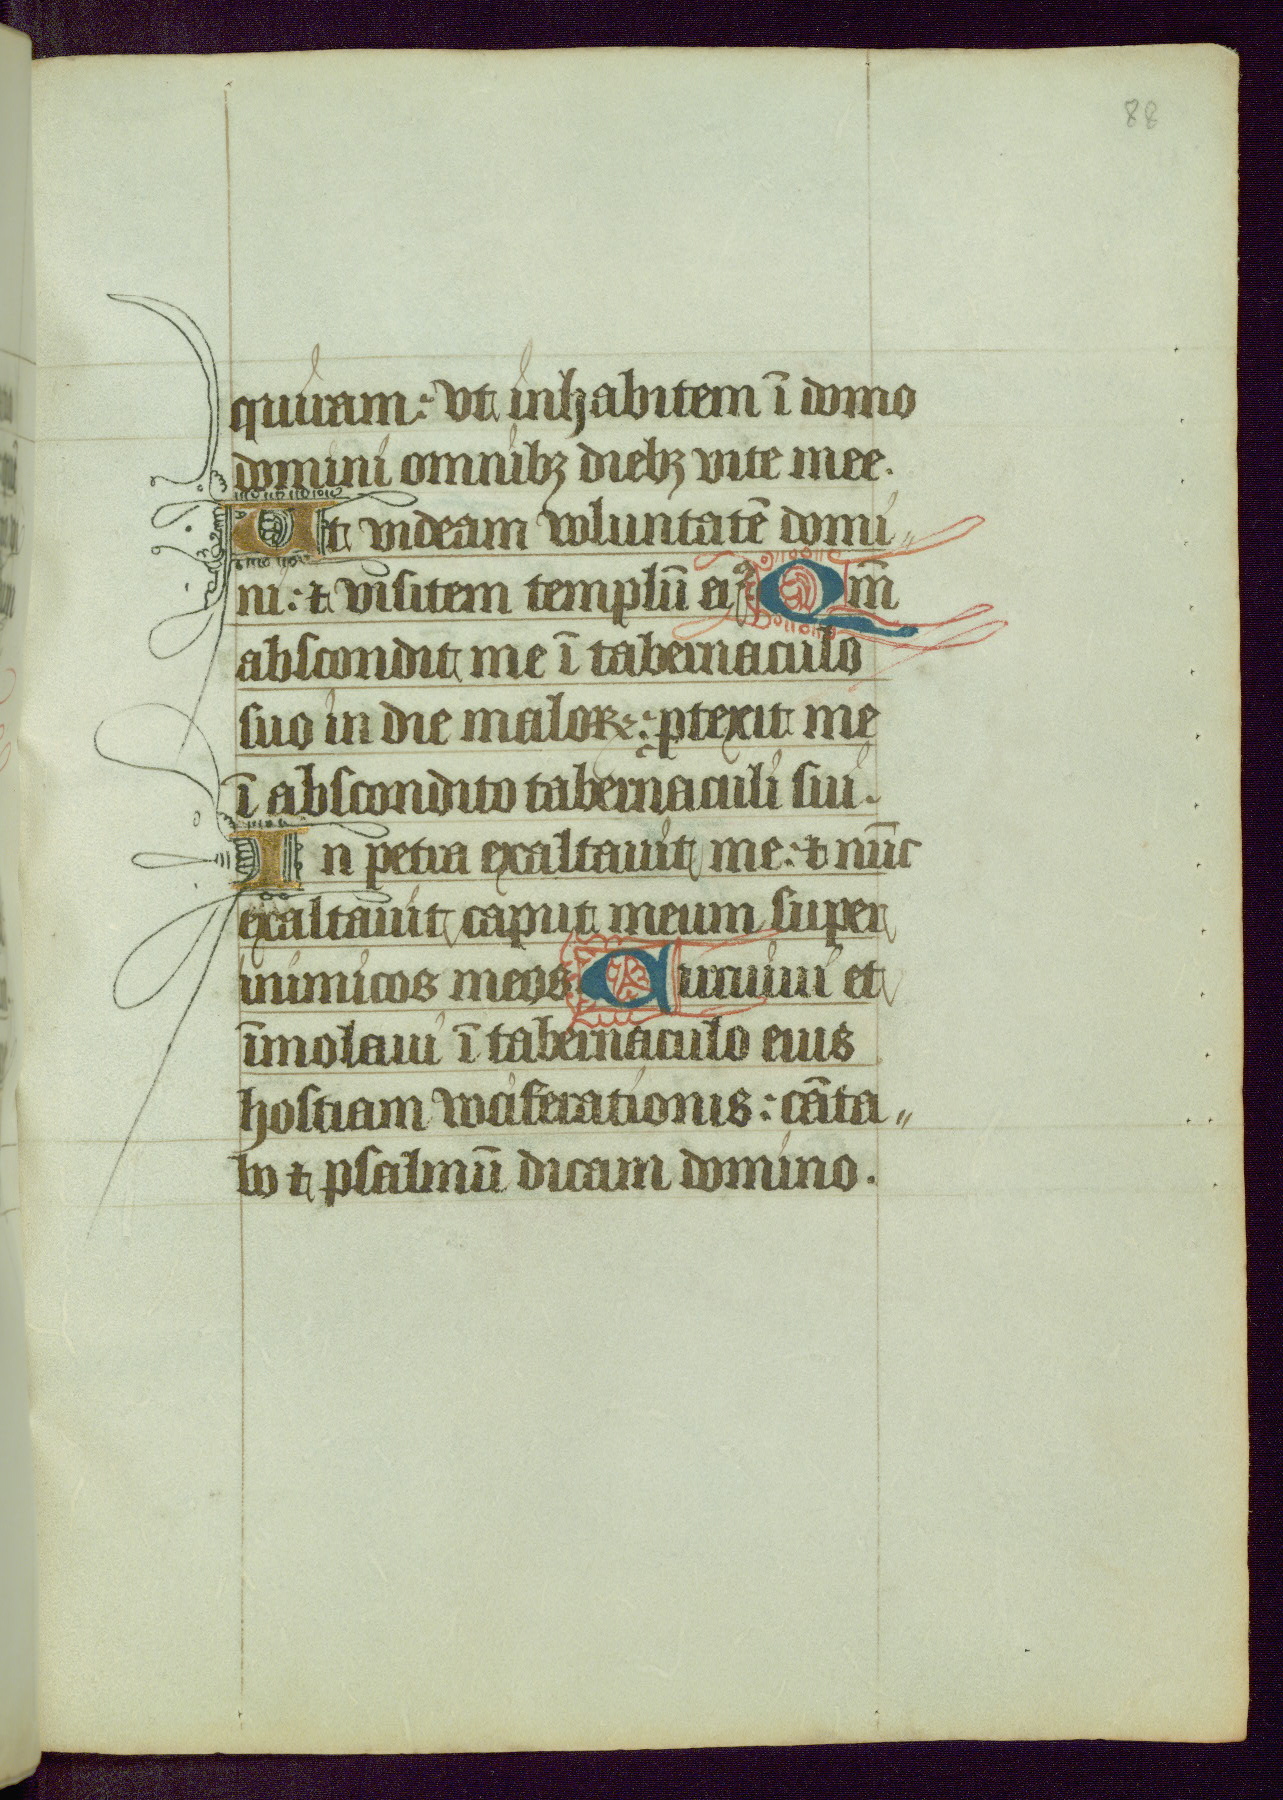 88
quiram: vt inhabitem ī domo
domini omnibꝫ diebꝫ vite mee.
Ut videam voluntatē domi„
ni: ⁊ visitem templū eiꝰ Qm̄
abscondit me ī tabernaculo
suo in die maloꝝ: ꝓtexit me
ī abscondito tabernaculi sui.
In petra exaltauit me: ⁊ nūc
exaltauit caput meum super
inimicos meos Circuiui et
īmolaui ī tabernaculo eius
hostiam vociferationis: cāta„
bo ⁊ psalmū dicam domino.